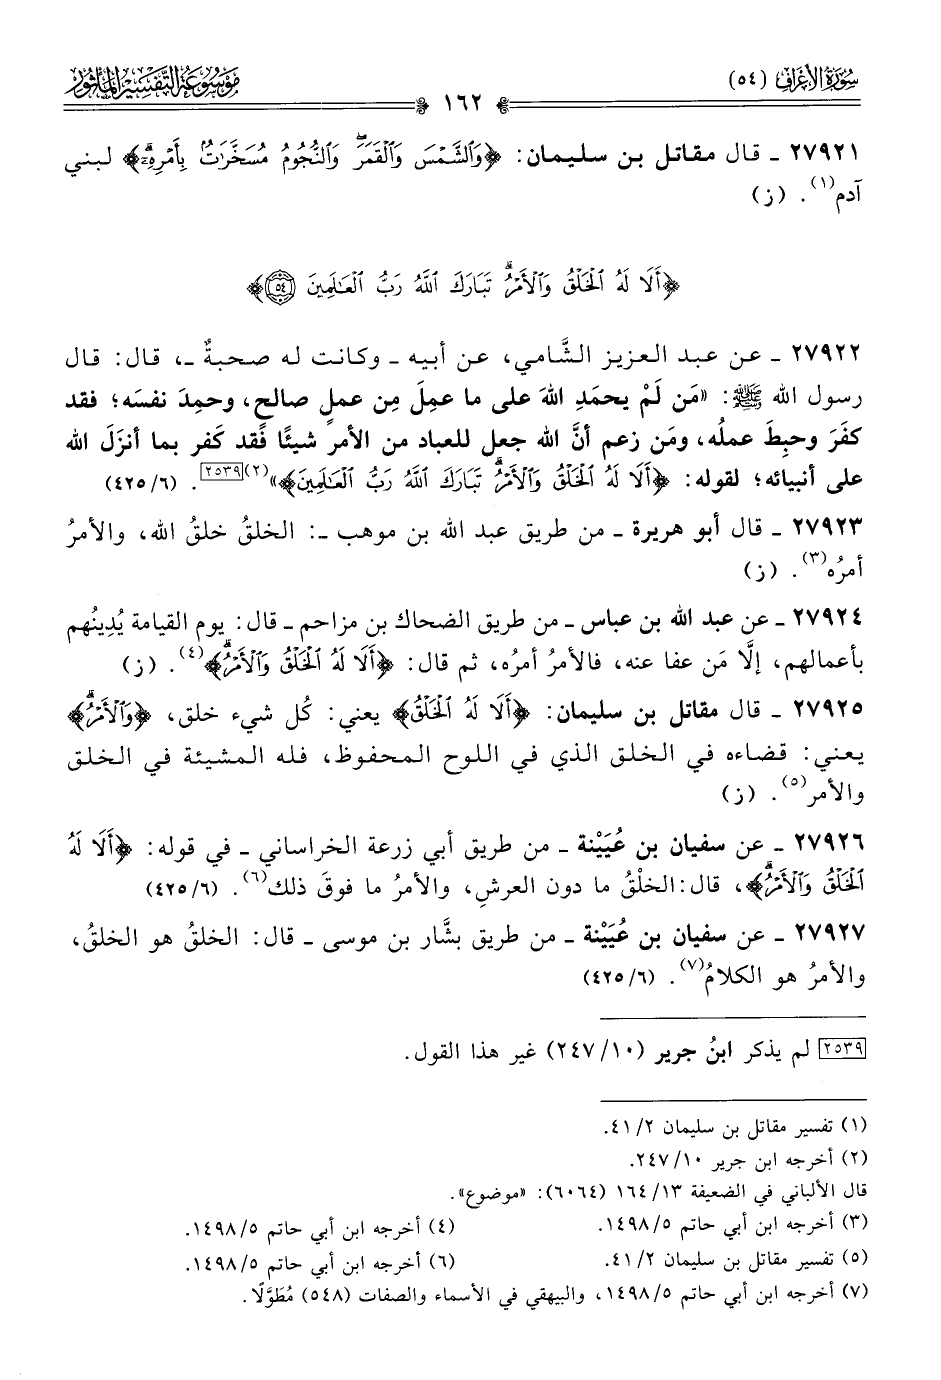 سُورَةُ الأَعْرَاف (٥٤)
١٦٢
مَوْسُوعَة التَّفْسِير المَأثُور
٢٧٩٢١ ـ قال مقاتل بن سليمان: ﴿وَٱلشَّمْسَ وَٱلْقَمَرَ وَٱلنُّجُومَ مُسَخَّرَٰتٍۭ بِأَمْرِهِۦٓ﴾ لبني
آدم(١). (ز)
﴿أَلَا لَهُ ٱلْخَلْقُ وَٱلْأَمْرُۗ تَبَارَكَ ٱللَّهُ رَبُّ ٱلْعَـٰلَمِينَ ٥٤﴾
٢٧٩٢٢ ـ عن عبد العزيز الشَّامي، عن أبيه ـ وكانت له صحبةٌ ـ، قال: قال
رسول الله ﷺ: «مَن لَمْ يحمَدِ اللهَ على ما عمِلَ مِن عملٍ صالحٍ، وحمِدَ نفسَه؛ فقد
كفَرَ وحبِطَ عملُه، ومَن زعم أنَّ الله جعل للعباد من الأمر شيئًا فقد كفر بما أنزَلَ الله
على أنبيائه؛ لقوله: ﴿أَلَا لَهُ ٱلْخَلْقُ وَٱلْأَمْرُۗ تَبَارَكَ ٱللَّهُ رَبُّ ٱلْعَـٰلَمِينَ﴾»(٢)[٢٥٣٩]. (٦/ ٤٢٥)
٢٧٩٢٣ ـ قال أبو هريرة ـ من طريق عبد الله بن موهب ـ: الخلقُ خلقُ الله، والأمرُ
أمرُه(٣). (ز)
٢٧٩٢٤ ـ عن عبد الله بن عباس ـ من طريق الضحاك بن مزاحم ـ قال: يوم القيامة يُدِينُهم
بأعمالهم، إلَّا مَن عفا عنه، فالأمرُ أمرُه، ثم قال: ﴿أَلَا لَهُ ٱلْخَلْقُ وَٱلْأَمْرُۗ﴾(٤). (ز)
٢٧٩٢٥ ـ قال مقاتل بن سليمان: ﴿أَلَا لَهُ ٱلْخَلْقُ﴾ يعني: كُل شيء خلق، ﴿وَٱلْأَمْرُۗ﴾
يعني: قضاءه في الخلق الذي في اللوح المحفوظ، فله المشيئة في الخلق
والأمر(٥). (ز)
٢٧٩٢٦ ـ عن سفيان بن عُيَيْنة ـ من طريق أبي زرعة الخراساني ـ في قوله: ﴿أَلَا لَهُ
ٱلْخَلْقُ وَٱلْأَمْرُۗ﴾، قال: الخلْقُ ما دون العرشِ، والأمرُ ما فوقَ ذلك(٦). (٦/ ٤٢٥)
٢٧٩٢٧ ـ عن سفيان بن عُيَيْنة ـ من طريق بشَّار بن موسى ـ قال: الخلقُ هو الخلقُ،
والأمرُ هو الكلامُ(٧). (٦/ ٤٢٥)
[٢٥٣٩] لم يذكر ابنُ جرير (١٠/ ٢٤٧) غير هذا القول.
(١) تفسير مقاتل بن سليمان ٢/ ٤١.
(٢) أخرجه ابن جرير ١٠/ ٢٤٧.
قال الألباني في الضعيفة ١٣/ ١٦٤ (٦٠٦٤): «موضوع».
(٣) أخرجه ابن أبي حاتم ٥/ ١٤٩٨. (٤) أخرجه ابن أبي حاتم ٥/ ١٤٩٨.
(٥) تفسير مقاتل بن سليمان ٢/ ٤١. (٦) أخرجه ابن أبي حاتم ٥/ ١٤٩٨.
(٧) أخرجه ابن أبي حاتم ٥/ ١٤٩٨، والبيهقي في الأسماء والصفات (٥٤٨) مُطَوَّلًا.